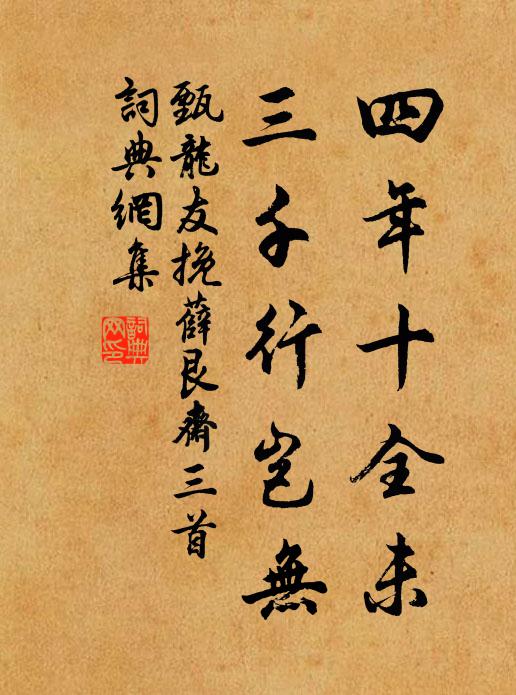 四年十全未
三千行豈無
甄龍友挽薛艮齋三首
詞典網集
詞典網印